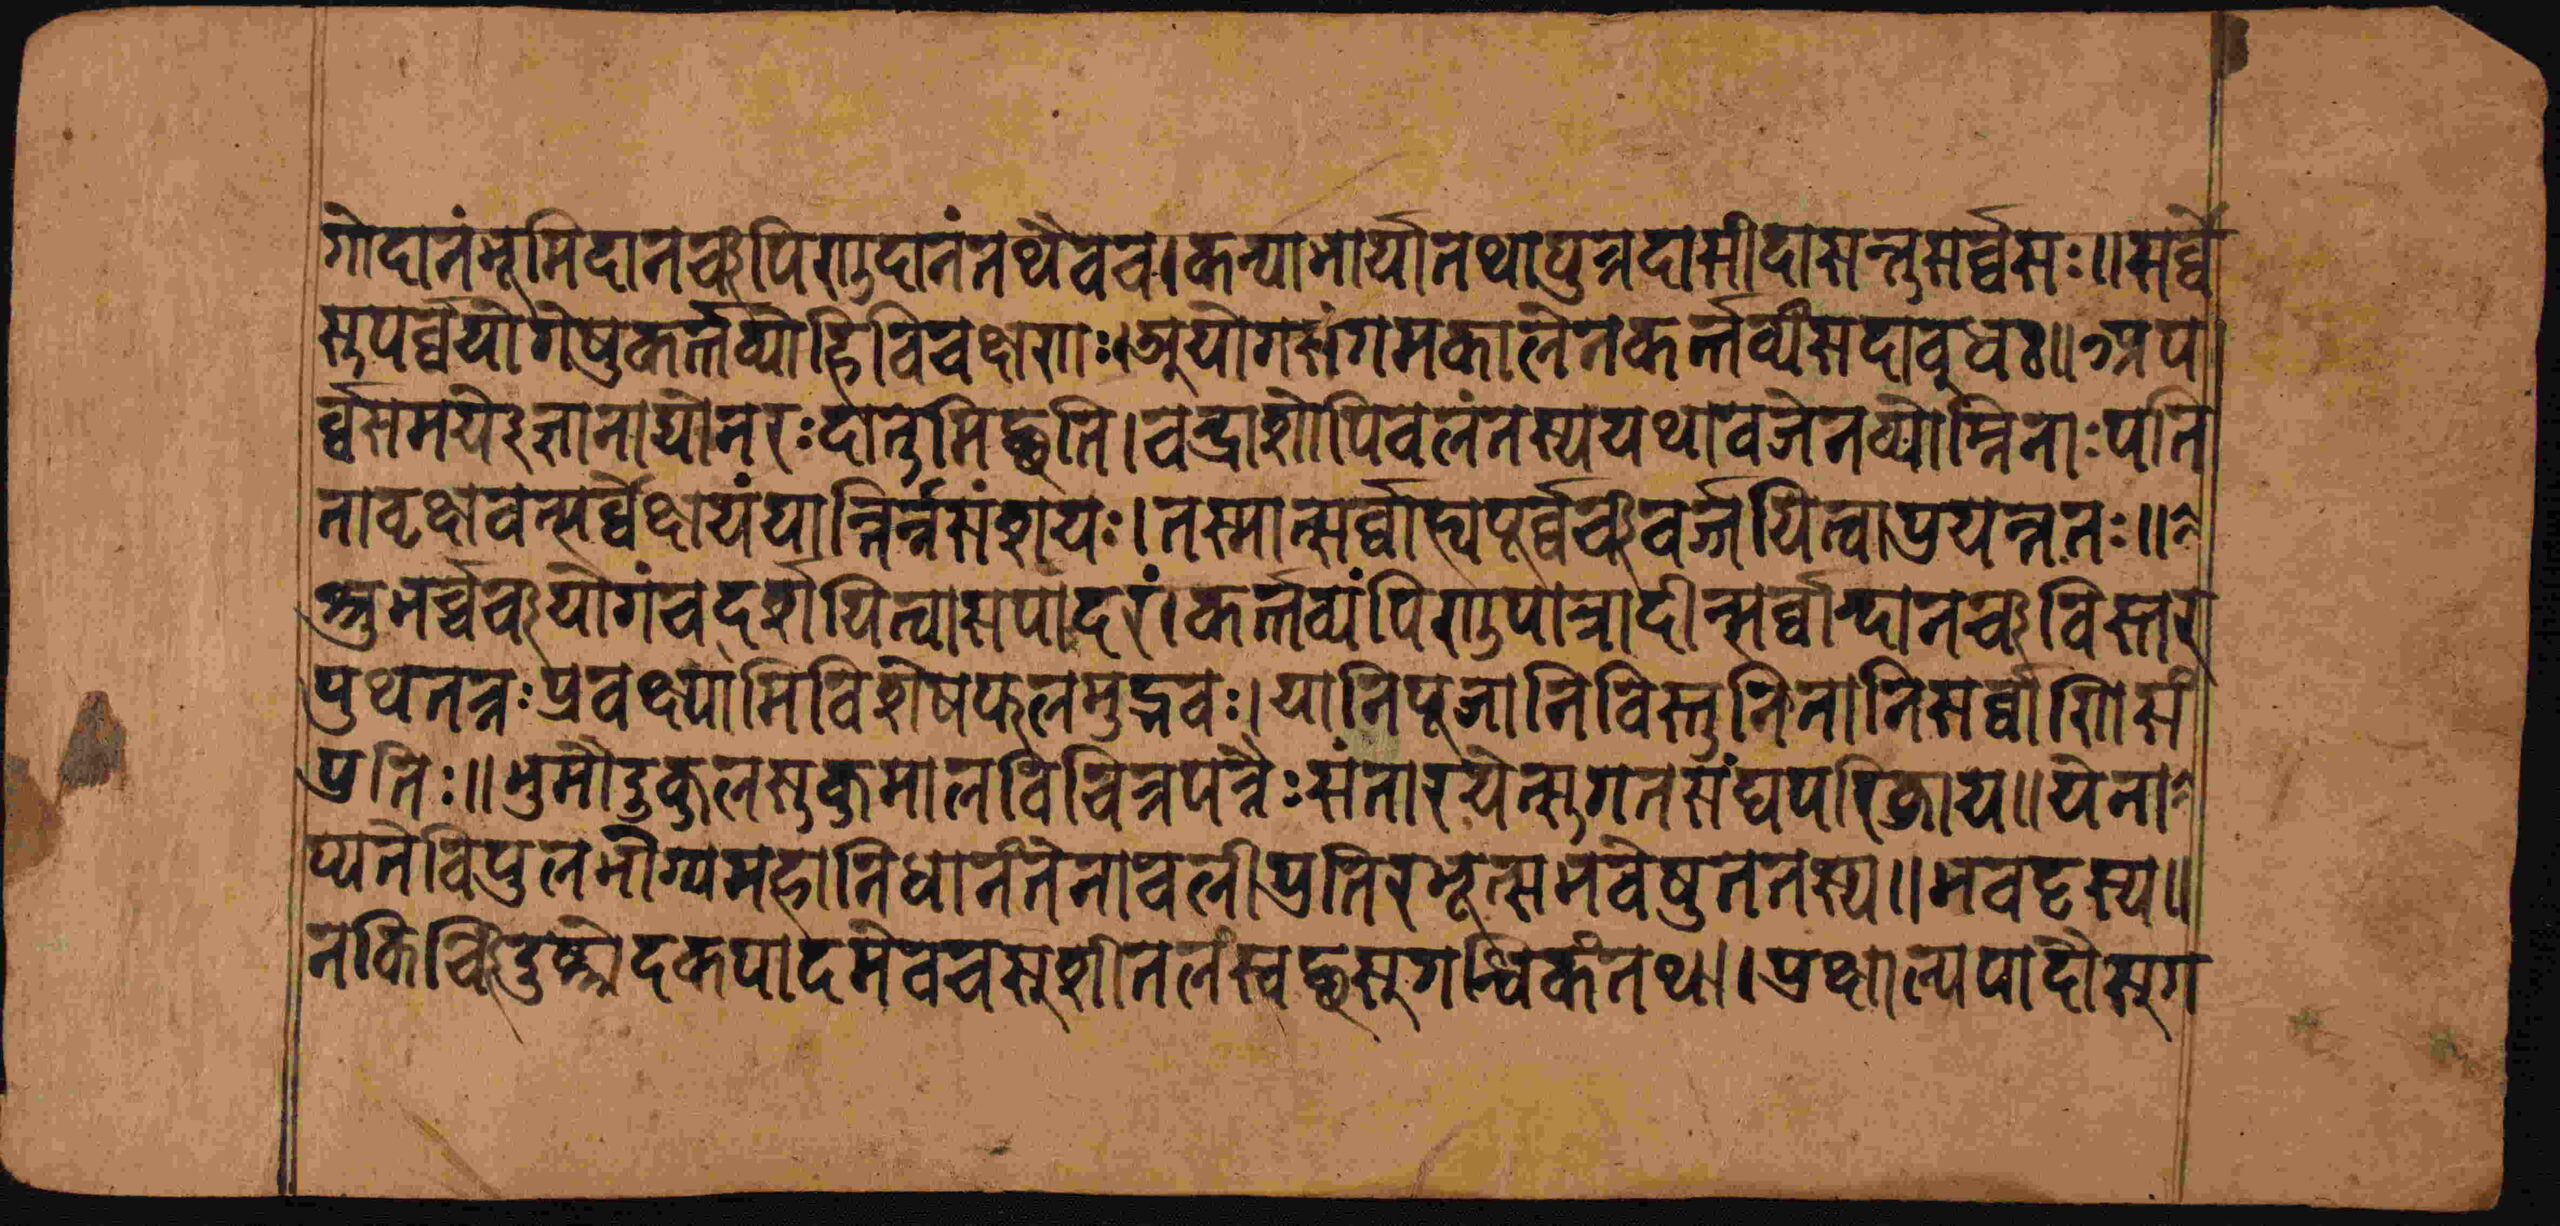 गोदानंभूमिदानञ्चपिण्डदानंतथैवच।कन्याभार्यातथापुत्रदासीदासन्तुसर्व्वसः॥सर्व्वे
सुपर्व्वयोगेषुकर्त्तव्योहिविचक्षणाः।अयोगसंगमकालेनकर्त्तव्यंसदाबुधः॥अप
र्व्वसमयेज्ञानाद्योनरःदातुमिच्छति।चन्द्राशोपिवलंतस्ययथावजेनव्योम्निताःपति
तावृक्षवत्सर्व्वेक्षयंयान्तिर्न्नसंशयः।तस्मात्सर्व्वास्यपूर्व्वञ्चवर्ज्जयित्वाप्रयत्नतः॥
भर्व्वञ्चयोगंचदर्शयित्वासपादरं।कर्त्तव्यंपिण्डपात्रादीन्सर्व्वान्दानञ्चविस्तर
पुथतन्नःप्रवक्ष्यामिविशेषफलमुद्भवः।यानिपूजानिविस्तुनितानिसर्व्वाणिसं
प्रतिः॥भुमौदुकुलसुकुमालविचित्रपत्रैःसंतारयेत्सुगतसंघपरिव्राय॥येना
प्यतेविपुलभोग्यमहानिधानंतेनावलीप्रतिरभूत्सभवेषुततस्य॥भवदृस्य॥
नकिञ्चिदुष्णोदकपादमेवचसुशीतलंस्वच्छसुगन्धिकंतथा।प्रक्षाल्यपादौसुग